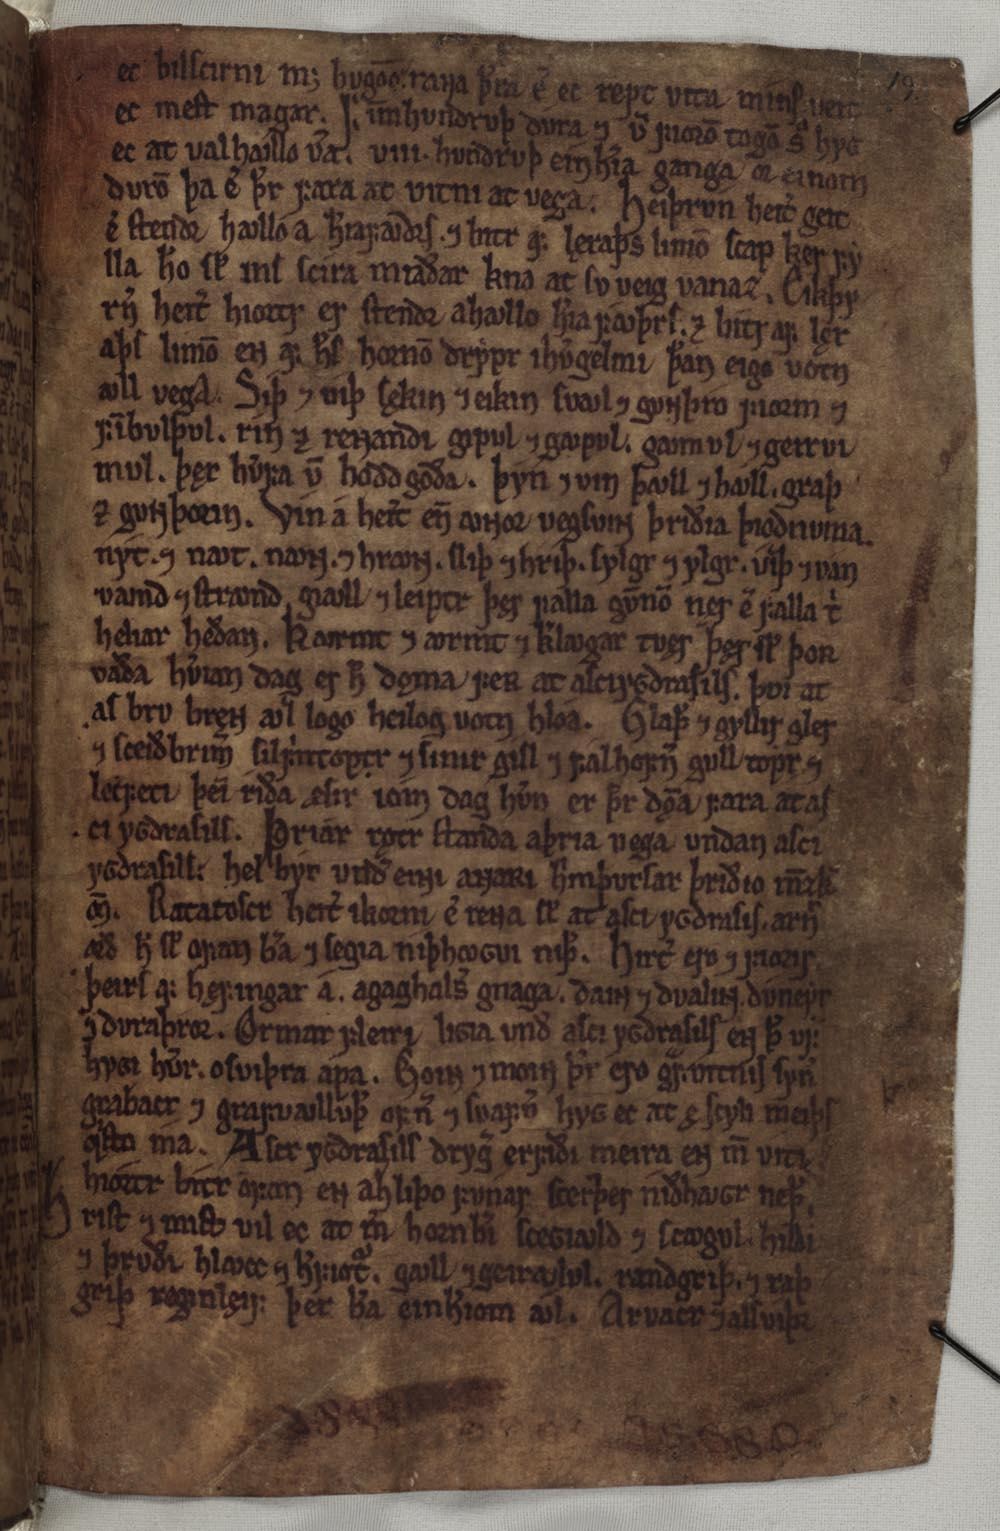 ec bilscirni mꝫ bugōo. rana þ̄ra ē ec rept vita mins veit
ec mest magar. F īmhvndrvþ dvra ⁊ v̄ fiorō togō s̄ hyg
ec at valhꜹllo v̄a. viii. hvndrvþ einh̄ia ganga ōr einom
dvrō þa ē þr̄ fara at vitni at vega. Heiþrvn heit̄ geit
ē stendr hꜹllo a h̄iafꜹdrs. ⁊ bitr af lęraþs limō scap ker fy
lla h̄o sk̄ ins scira miaðar kna at sv veig vanaz. Eikþy
rn̄ heit̄ hiortr er stendr a hꜹllo h̄iafꜹþrs. ⁊ bitr af lęr
aþs limō en af h̄s hornō drypr ihv̄gelmi þan eigo votn
ꜹll vega. Siþ ⁊ viþ sękin ⁊ eikin svꜹl ⁊ gvnþro fiorm ⁊
fībvlþvl. rin ⁊ rennandi gipvl ⁊ gꜹpvl. gꜹmvl ⁊ geirvi
mvl. þęr hv̄fa v̄ hodd goða. þyn ⁊ vin þꜹll ⁊ hꜹll. graþ
⁊ gvnþorin. Vin a heit̄ en̄ ꜹnnor vegsvin þriðia þiodnvma.
nyt. ⁊ nꜹt. nꜹnn. ⁊ hrꜹnn. sliþ ⁊ hriþ. sylgr ⁊ ylgr. viþ ⁊ van
vꜹnd ⁊ strꜹnd giꜹll ⁊ leiptr þęr falla gv̄nō nęr ē falla t̄
heliar heðan. Kormt ⁊ ormt ⁊ k̄lꜹgar tvęr þęr sk̄ þor
vaða hv̄ian dag er h̄ dǫma feR at asci ygdrasils. þvi at
as brv breN ꜹll logo heilog votn hloa. Glaþr ⁊ gyllir gler
⁊ sceiðbrim̄ silfrintoptr ⁊ sinir gisl ⁊ falhofn̄ gvlltopr ⁊
letfeti þei riða ęsir iom dag hv̄n er þr̄ dǭa fara at as
ci ygdrasils. Þriar rǫtr standa a þria vega vndan asci
ygdrasils. hel byr vnd̄ enni aNaRi h̄mþvrsar þriðio m̄zk
ōn̄. Ratatoscr heit̄ ikorni ē renna sk̄ at asci ygdrasils. arn̄
orð h̄ sk̄ ofan b̄a ⁊ segia niþhꜹgvi niþ̄. Hirt̄ ero ⁊ fiorir
þeirs af hęfingar a. agaghals̄ gnaga. dain ⁊ dvalin. dvneyr
⁊ dvraþror. Ormar fleiri ligia vnd̄ asci ygdrasils en þ̄ vf
hygi hv̄r. osviþra apa. Goin ⁊ moin þr̄ ero grafvitnis syn̄
grabacr ⁊ grafvꜹllvþr ofn̄ ⁊ svafn̄ hyg ec at ę scyli meiþs
qisto ma. Ascr ygdrasils dryg̅ erfiði meira en m̄ viti
hiortr bitr ofan en a hliþo fvnar scerþer niðhꜹgr neþ̄.
Hrist ⁊ mist vil ec at m̄ horn b̄i sceggiꜹld ⁊ scꜹgvl. hildi
⁊ þrvði hlꜹcc ⁊ h̄fiotr. gꜹll ⁊ geirꜹlvl. randgriþ. ⁊ raþ
griþ reginleif. þer b̄a einh̄iom ꜹl. Arvacr ⁊ alsviþr